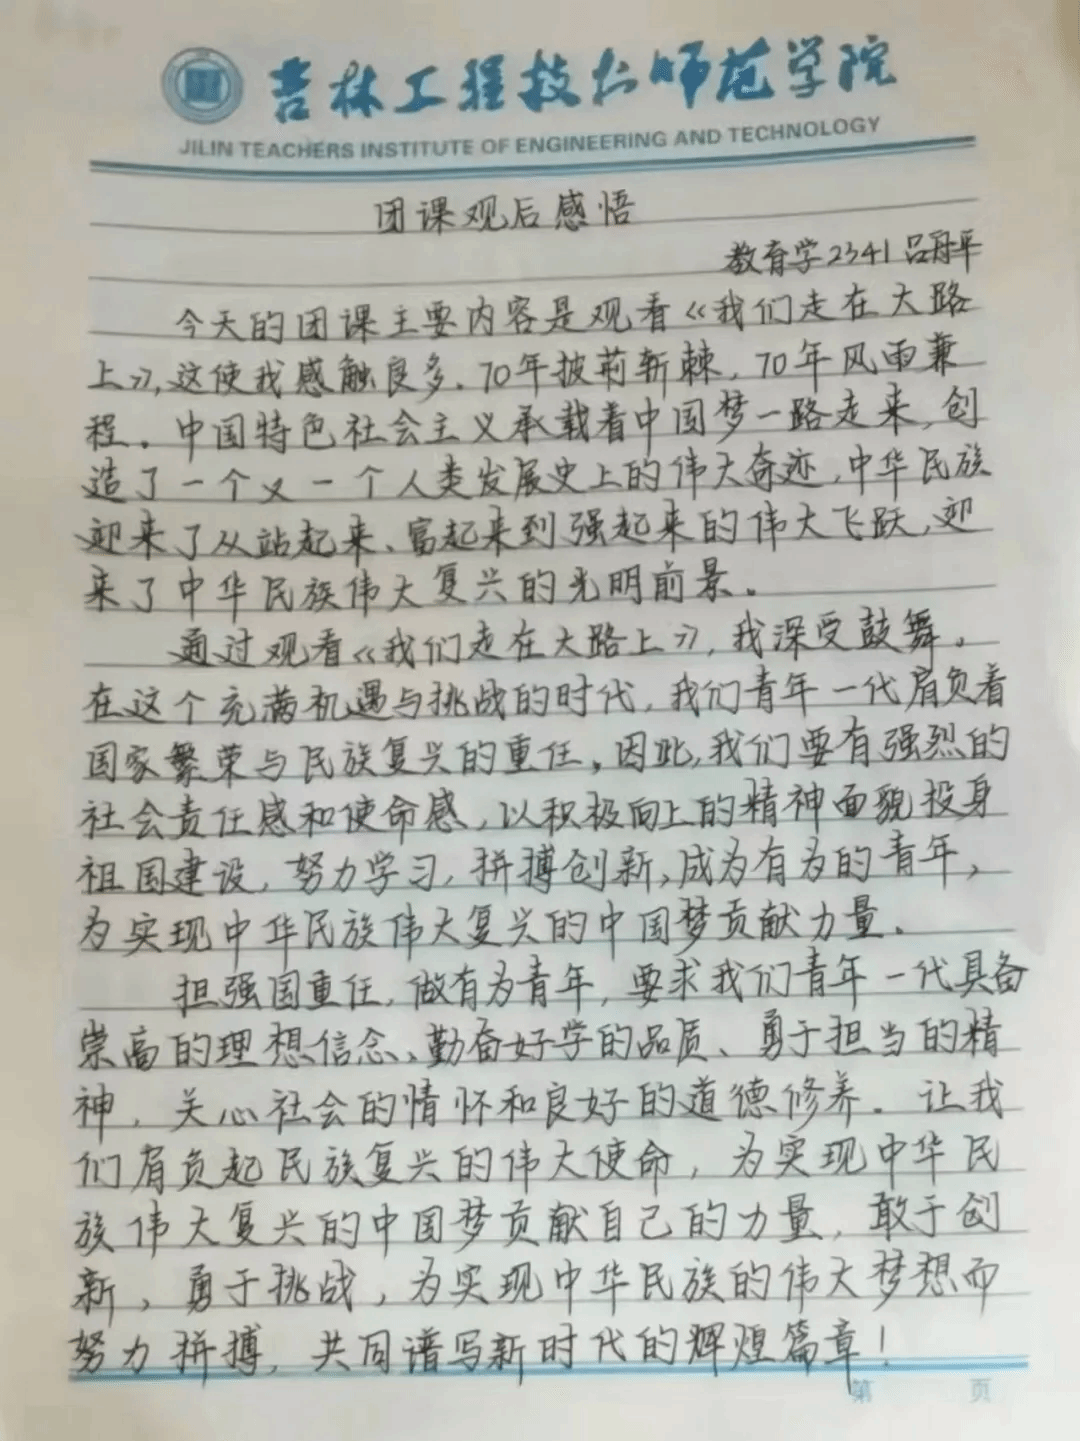 吉林工程技术师范学院
JILIN TEACHERS INSTITUTE OF ENGINEERING AND TECHNOLOGY
团课观后感悟
教育学2341 吕丹平
今天的团课主要内容是观看《我们走在大路
上》,这使我感触良多。70年披荆斩棘,70年风雨兼
程。中国特色社会主义承载着中国梦一路走来,创
造了一个又一个人类发展史上的伟大奇迹,中华民族
迎来了从站起来、富起来到强起来的伟大飞跃,迎
来了中华民族伟大复兴的光明前景。
通过观看《我们走在大路上》,我深受鼓舞。
在这个充满机遇与挑战的时代,我们青年一代肩负着
国家繁荣与民族复兴的重任。因此,我们要有强烈的
社会责任感和使命感,以积极向上的精神面貌投身
祖国建设,努力学习,拼搏创新,成为有为的青年,
为实现中华民族伟大复兴的中国梦贡献力量。
担强国重任,做有为青年,要求我们青年一代具备
崇高的理想信念、勤奋好学的品质、勇于担当的精
神,关心社会的情怀和良好的道德修养。让我
们肩负起民族复兴的伟大使命,为实现中华民
族伟大复兴的中国梦贡献自己的力量,敢于创
新,勇于挑战,为实现中华民族的伟大梦想而
努力拼搏,共同谱写新时代的辉煌篇章!
第 页